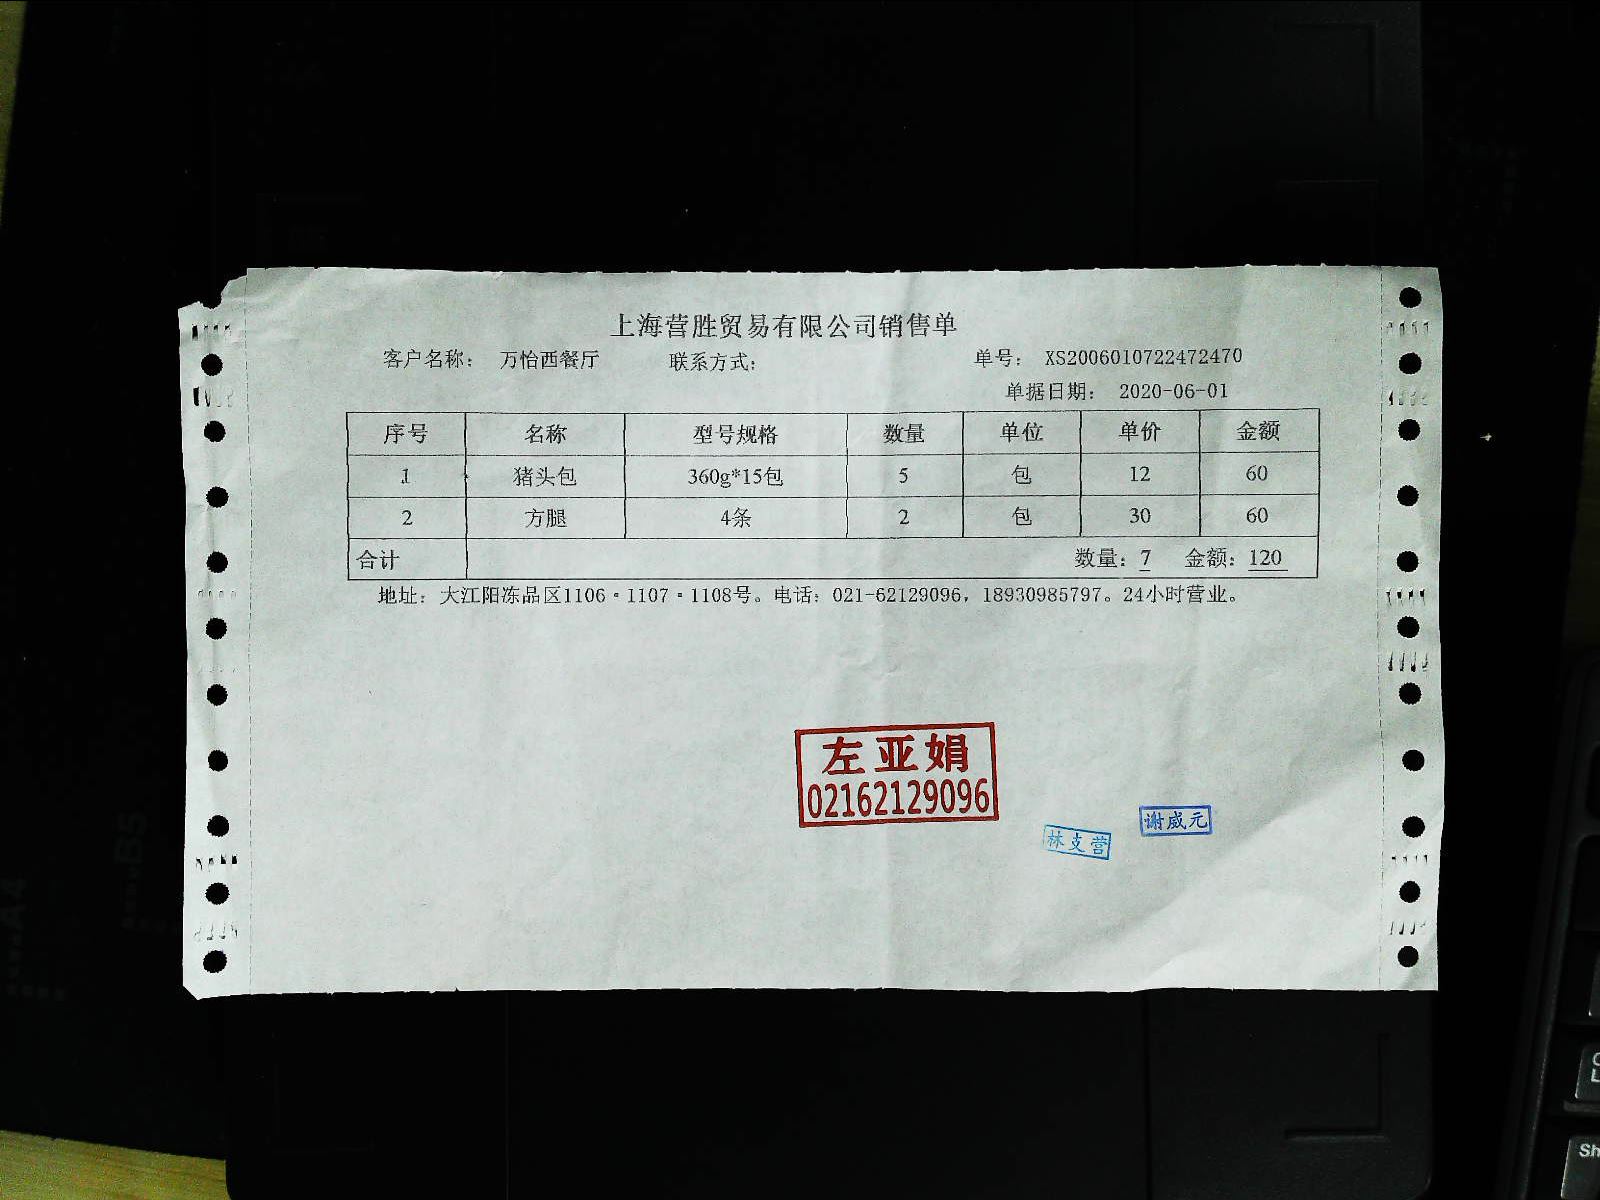 上海营胜贸易有限公司销售单
客户名称： 万怡西餐厅 联系方式： 单号： XS2006010722472470
单据日期： 2020-06-01
序号 名称 型号规格 数量 单位 单价 金额
1 猪头包 360g*15包 5 包 12 60
2 方腿 4条 2 包 30 60
合计 数量：7 金额：120
地址：大江阳冻品区1106·1107·1108号。电话：021-62129096，18930985797。24小时营业。
左亚娟
02162129096
谢威元
林支营
B5
A4
Sh